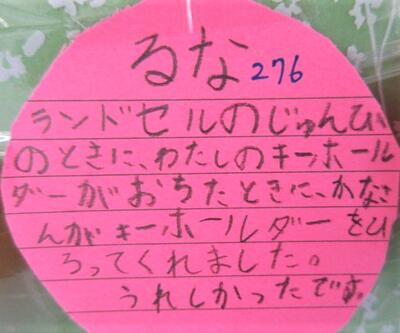 るな 276
ランドセルのじゅんび
のときに、わたしのキーホール
ダーがおちたときに、かなさ
んがキーホールダーをひ
ろってくれました。
うれしかったです。